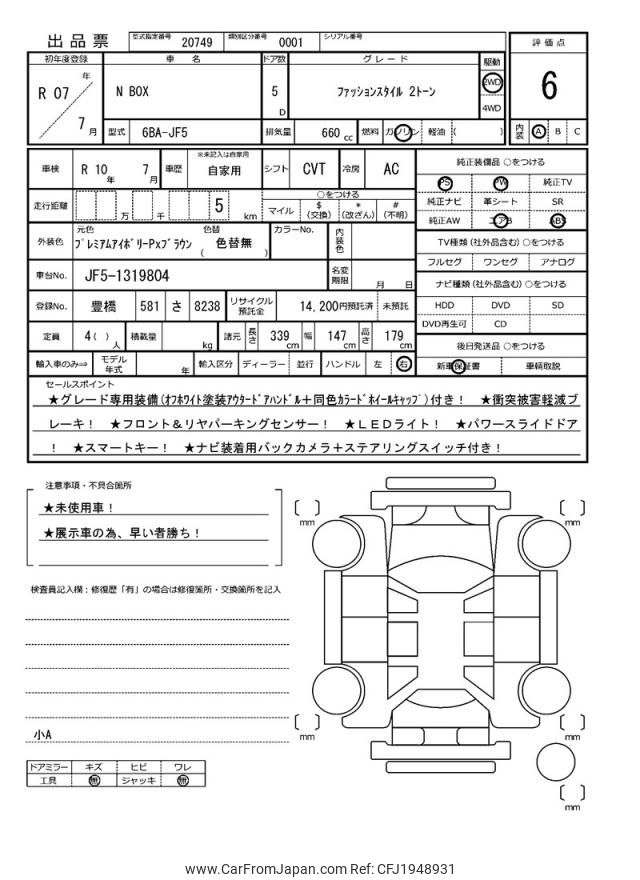 出品票 型式指定番号 20749 類別区分番号 0001 シリアル番号
評価点
6
初年度登録 車名 ドア数 グレード 駆動
R 07 年 7 月
N BOX 5 D ファッションスタイル 2トーン 2WD
4WD
型式 6BA-JF5 排気量 660 cc 燃料 ガソリン 軽油 ( )
内装 A B C
車検 R 10 年 7 月 車歴 ※未記入は自家用 自家用 シフト CVT 冷房 AC
走行距離 万 千 5 km
○をつける
マイル $ (交換) * (改ざん) # (不明)
外装色 元色 プレミアムアイボリーPxブラウン 色替 ( 色替無 ) カラーNo. 内装色
車台No. JF5-1319804 名変期限 月 日
登録No. 豊橋 581 さ 8238 リサイクル預託金 14,200円預託済 未預託
定員 4( )人 積載量 kg 諸元 長さ 339 cm 幅 147 cm 高さ 179 cm
輸入車のみ⇒ モデル年式 年 輸入区分 ディーラー 並行 ハンドル 左 右
純正装備品 ○をつける
PS PW 純正TV
純正ナビ 革シート SR
純正AW エアB ABS
TV種類 (社外品含む) ○をつける
フルセグ ワンセグ アナログ
ナビ種類 (社外品含む) ○をつける
HDD DVD SD
DVD再生可 CD
後日発送品 ○をつける
新車保証書 車輌取説
セールスポイント
★グレード専用装備(オフホワイト塗装アウタードアハンドル＋同色カラードホイールキャップ)付き！ ★衝突被害軽減ブ
レーキ！ ★フロント＆リヤパーキングセンサー！ ★ＬＥＤライト！ ★パワースライドドア
！ ★スマートキー！ ★ナビ装着用バックカメラ＋ステアリングスイッチ付き！
注意事項・不具合箇所
★未使用車！
★展示車の為、早い者勝ち！
検査員記入欄：修復歴「有」の場合は修復箇所・交換箇所を記入
小A
ドアミラー キズ ヒビ ワレ
工具 無 ジャッキ 無
[ ] mm
[ ] mm
[ ] mm
[ ] mm
[ ] mm
www.CarFromJapan.com Ref: CFJ1948931